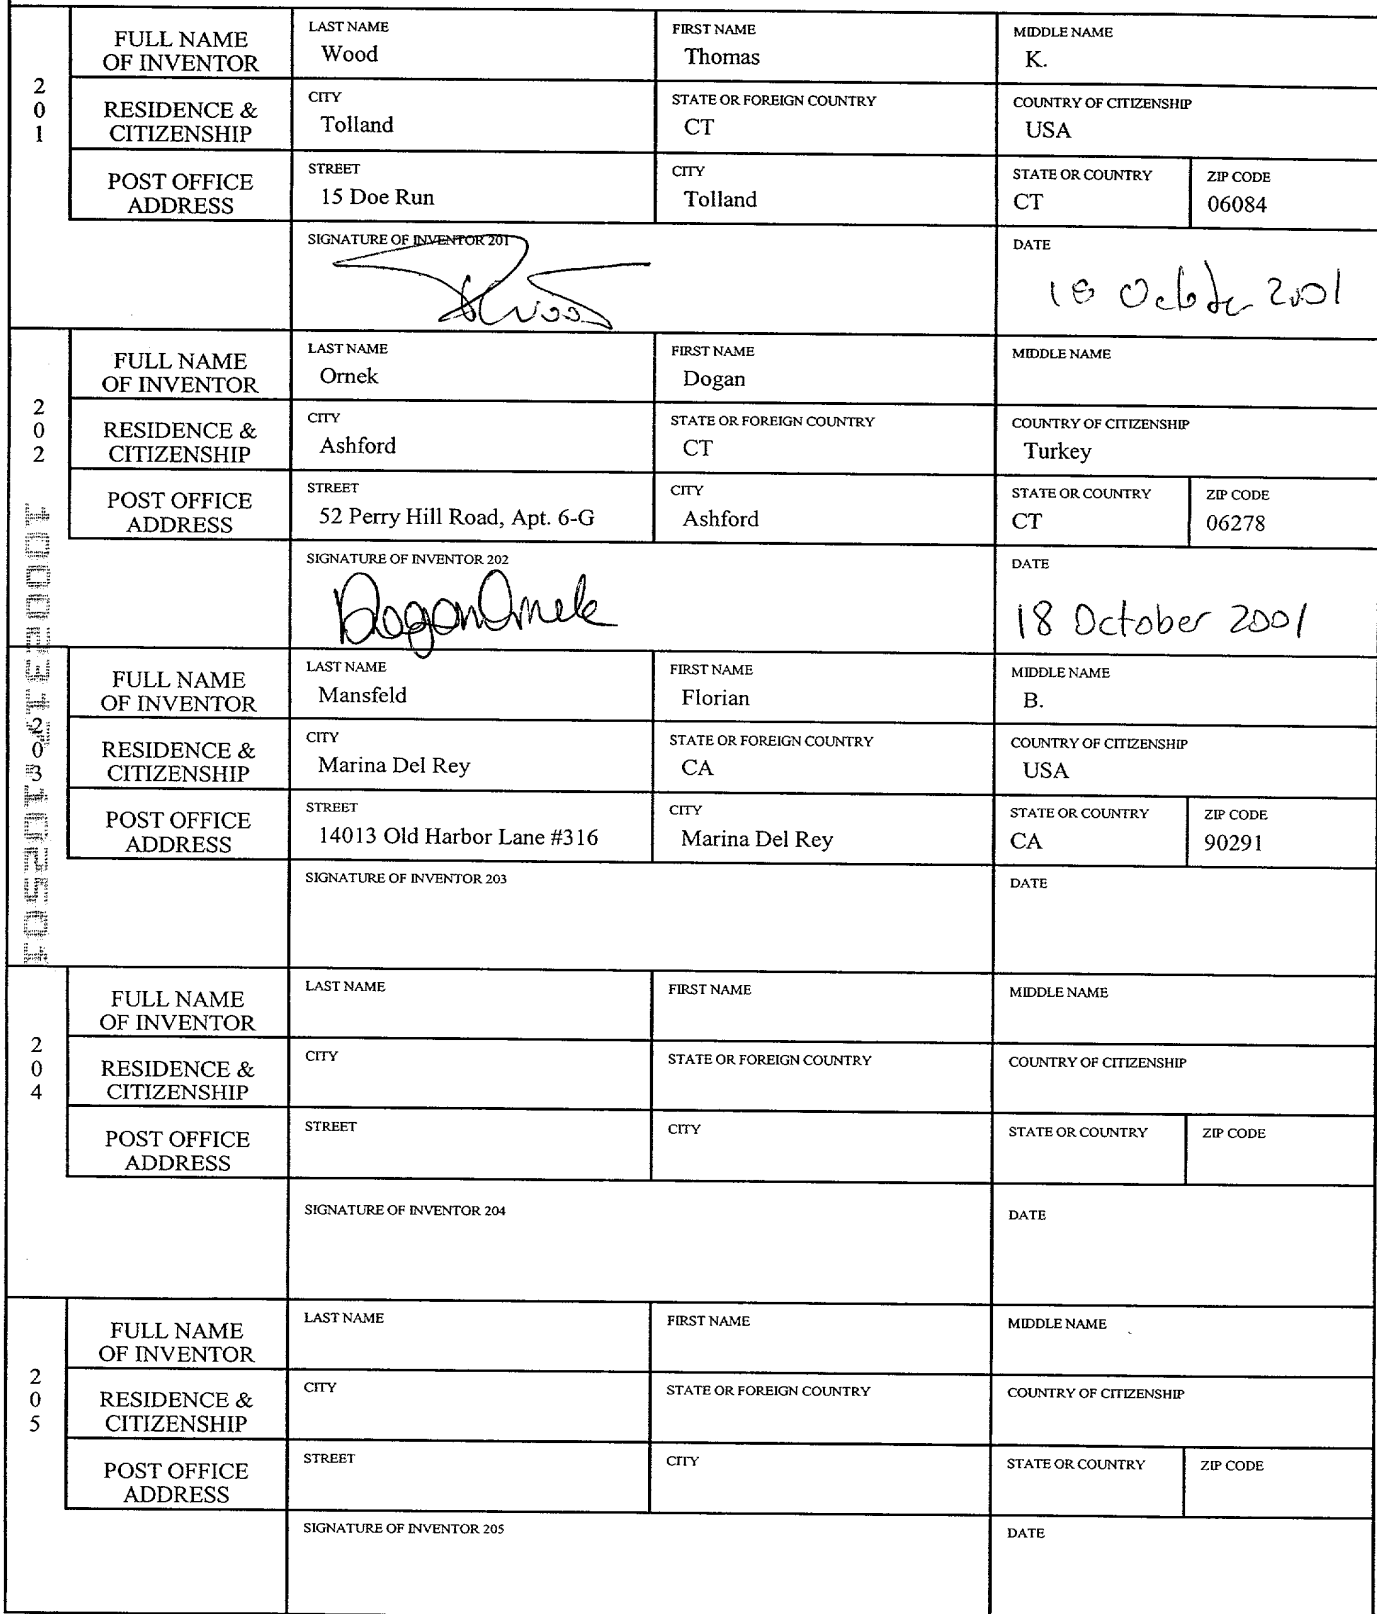 201
FULL NAME OF INVENTOR
LAST NAME Wood
FIRST NAME Thomas
MIDDLE NAME K.
RESIDENCE & CITIZENSHIP
CITY Tolland
STATE OR FOREIGN COUNTRY CT
COUNTRY OF CITIZENSHIP USA
POST OFFICE ADDRESS
STREET 15 Doe Run
CITY Tolland
STATE OR COUNTRY CT
ZIP CODE 06084
SIGNATURE OF INVENTOR 201
DATE 18 October 2001
202
FULL NAME OF INVENTOR
LAST NAME Ornek
FIRST NAME Dogan
MIDDLE NAME
RESIDENCE & CITIZENSHIP
CITY Ashford
STATE OR FOREIGN COUNTRY CT
COUNTRY OF CITIZENSHIP Turkey
POST OFFICE ADDRESS
STREET 52 Perry Hill Road, Apt. 6-G
CITY Ashford
STATE OR COUNTRY CT
ZIP CODE 06278
SIGNATURE OF INVENTOR 202 Dogan Ornek
DATE 18 October 2001
203
FULL NAME OF INVENTOR
LAST NAME Mansfeld
FIRST NAME Florian
MIDDLE NAME B.
RESIDENCE & CITIZENSHIP
CITY Marina Del Rey
STATE OR FOREIGN COUNTRY CA
COUNTRY OF CITIZENSHIP USA
POST OFFICE ADDRESS
STREET 14013 Old Harbor Lane #316
CITY Marina Del Rey
STATE OR COUNTRY CA
ZIP CODE 90291
SIGNATURE OF INVENTOR 203
DATE
204
FULL NAME OF INVENTOR
LAST NAME
FIRST NAME
MIDDLE NAME
RESIDENCE & CITIZENSHIP
CITY
STATE OR FOREIGN COUNTRY
COUNTRY OF CITIZENSHIP
POST OFFICE ADDRESS
STREET
CITY
STATE OR COUNTRY
ZIP CODE
SIGNATURE OF INVENTOR 204
DATE
205
FULL NAME OF INVENTOR
LAST NAME
FIRST NAME
MIDDLE NAME
RESIDENCE & CITIZENSHIP
CITY
STATE OR FOREIGN COUNTRY
COUNTRY OF CITIZENSHIP
POST OFFICE ADDRESS
STREET
CITY
STATE OR COUNTRY
ZIP CODE
SIGNATURE OF INVENTOR 205
DATE